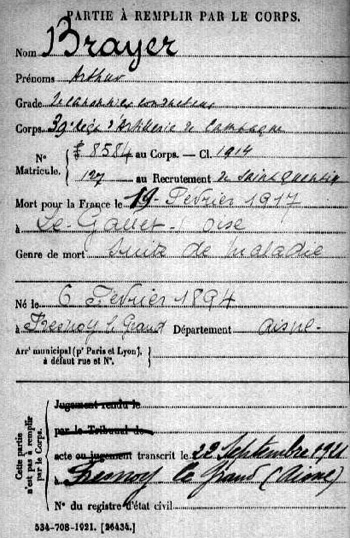 PARTIE À REMPLIR PAR LE CORPS.
Nom Brayer
Prénoms Arthur
Grade 2e canonnier conducteur
Corps 39e Régt d'Artillerie de Campagne
N° Matricule. { 8584 au Corps. — Cl. 1914
127 au Recrutement de Saint Quentin
Mort pour la France le 19 Février 1917
à Le Gallet - oise
Genre de mort suite de maladie
Né le 6 Février 1894
à Fresnoy le Grand Département aisne -
Arr' municipal (p' Paris et Lyon),
à défaut rue et N°.
Cette partie n'est pas à remplir par le Corps.
Jugement rendu le
par le Tribunal de
acte ou jugement transcrit le 22 Septembre 1921
à Fresnoy le Grand (Aisne)
N° du registre d'état civil
534-708-1921. [26434.]